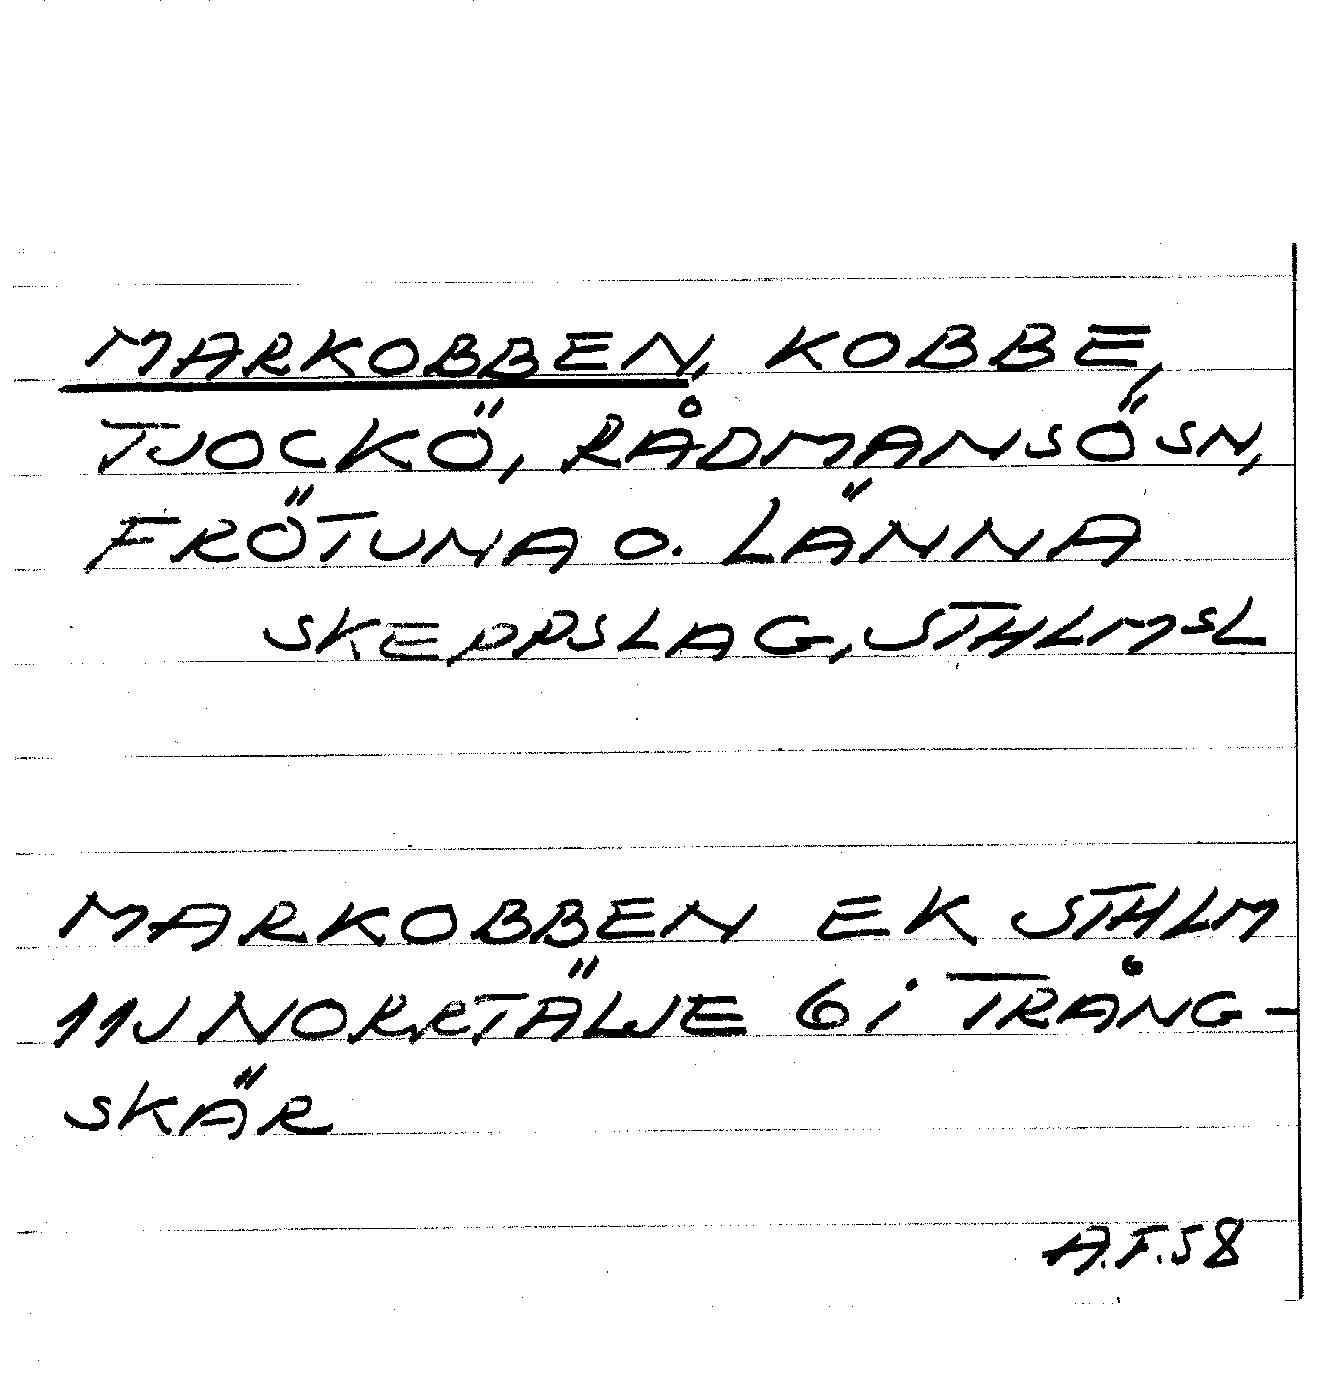 MARKOBBEN, KOBBE,
TJOCKÖ, RÅDMANSÖ SN,
FRÖTUNA O. LÄNNA
SKEPPSLAG, STHLMS L
MARKOBBEN EK STHLM
11J NORRTÄLJE 6 i TRÅNG-
SKÄR
A.F.58